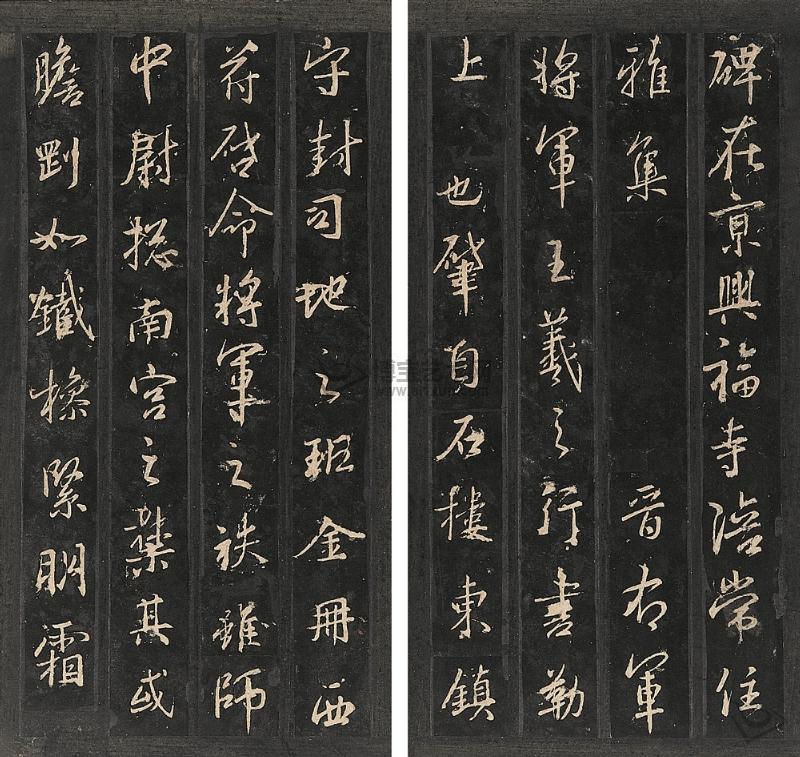 碑在京興福寺陪常住
雅集 晋右軍
将軍王羲之行書勒
上 也肇自石樓東鎮
守封司地之班金冊西
符啓命将軍之袟雖師
中尉摠南宮之禁其或
瞻剛如鐵操緊明霜